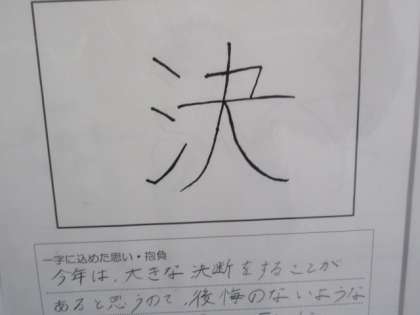 決
一字に込めた思い・抱負
今年は、大きな決断をすることが
あると思うので、後悔のないような